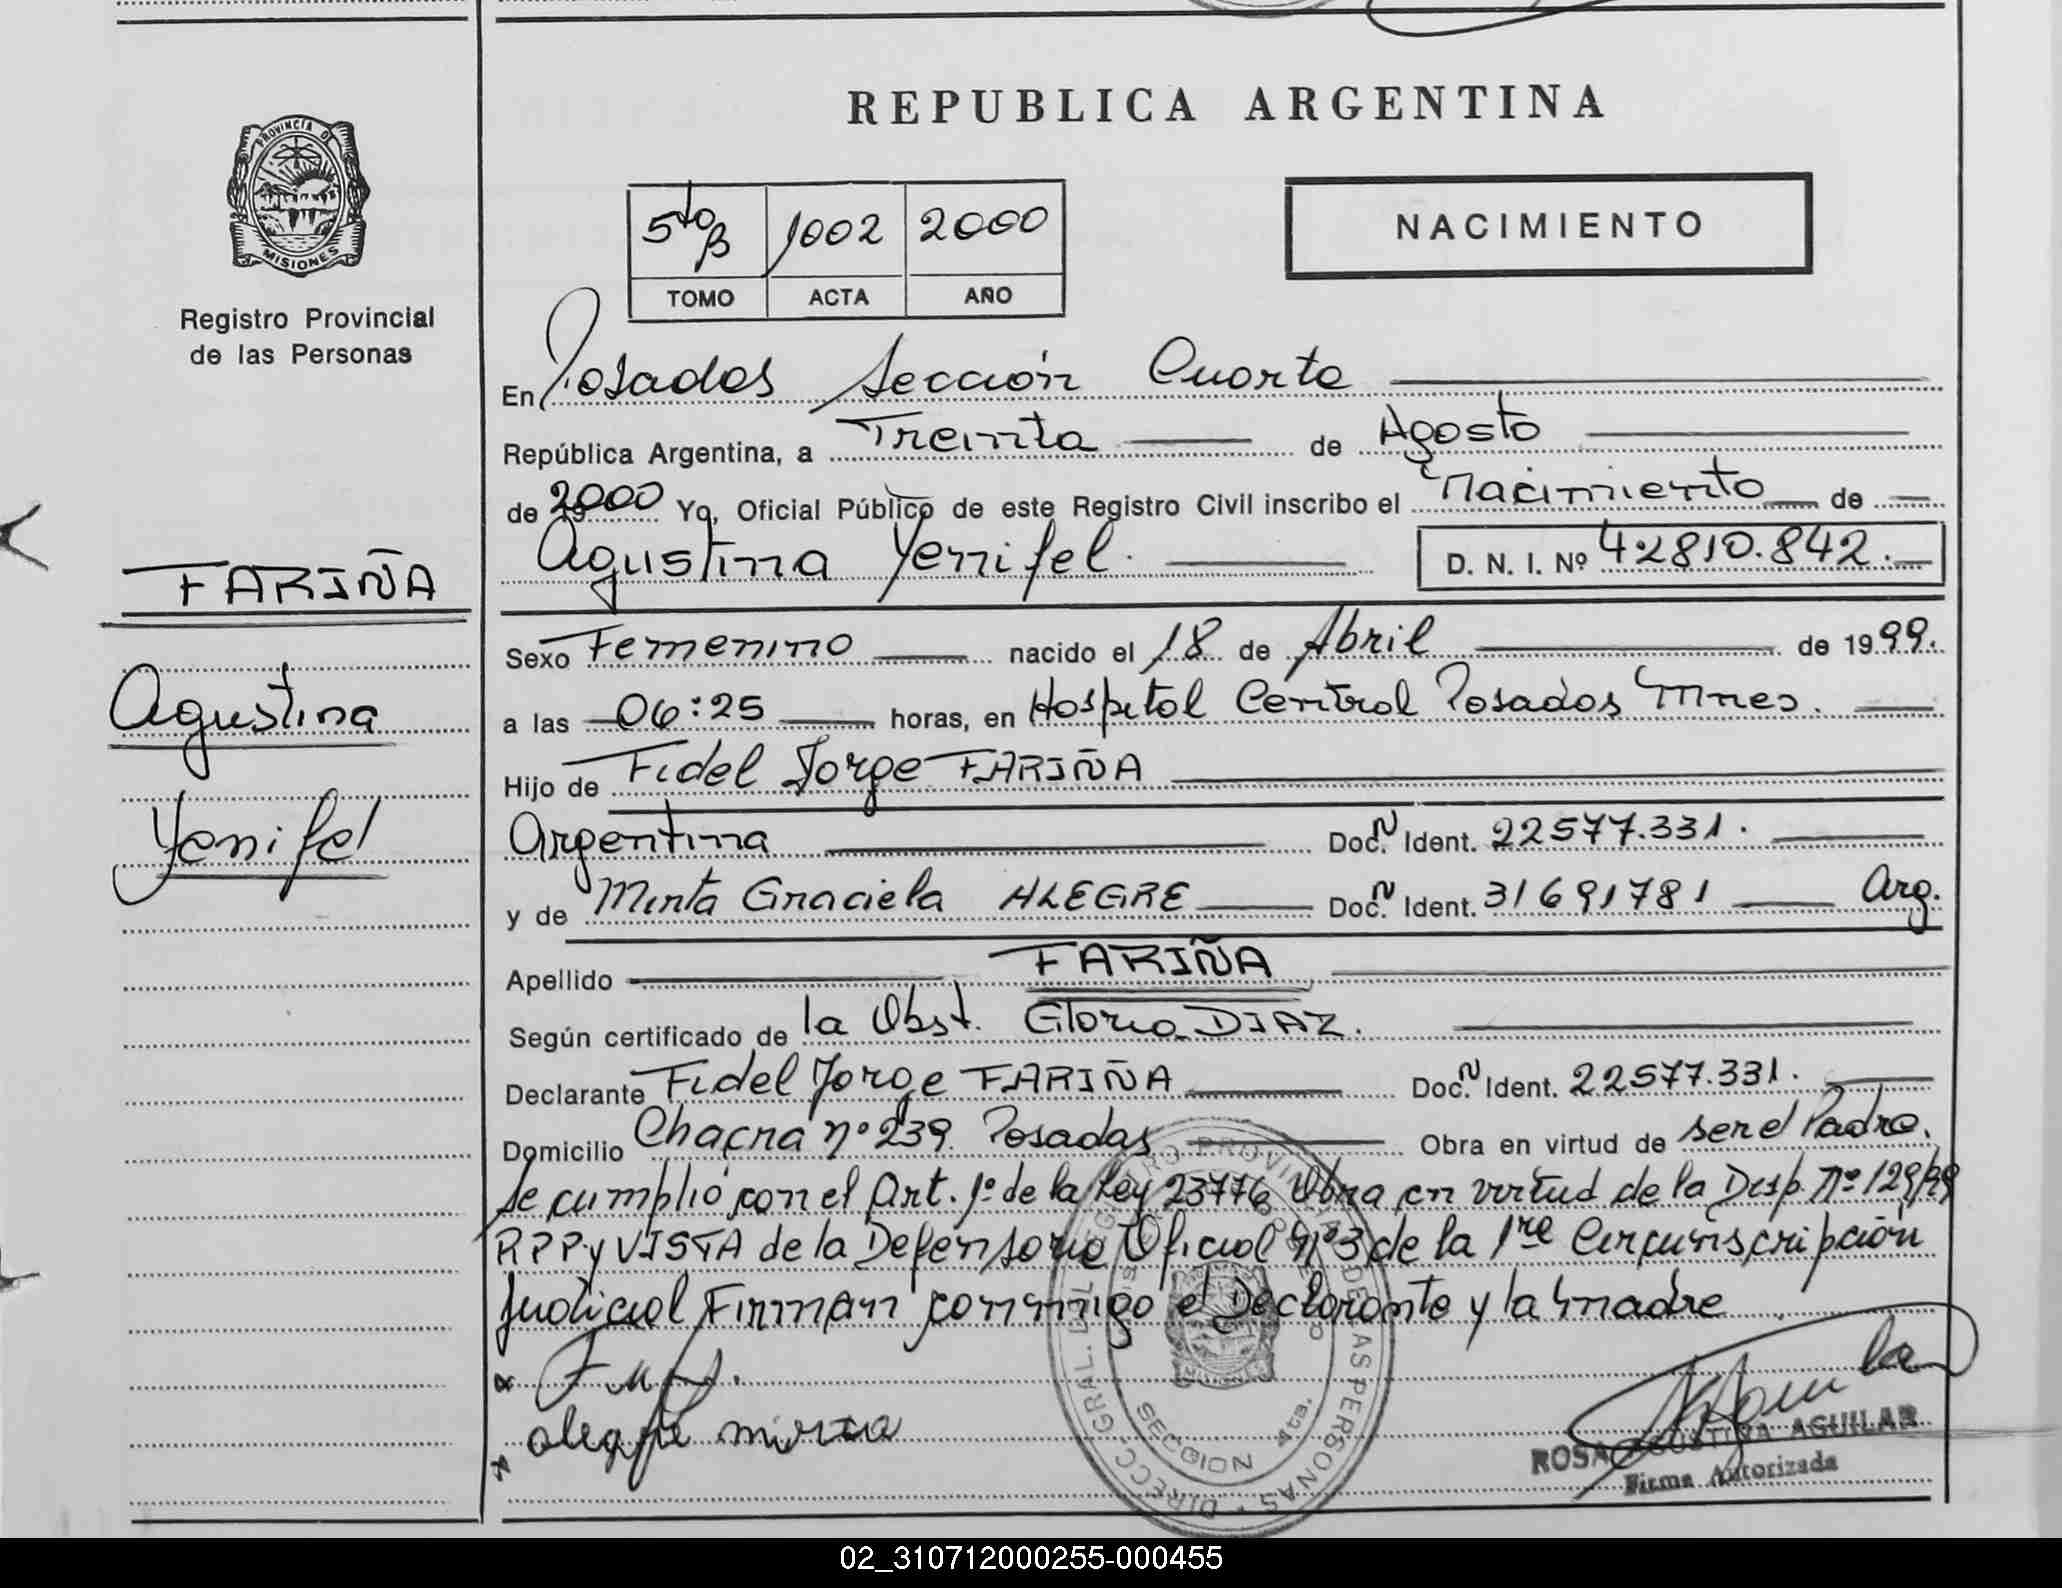 REPUBLICA ARGENTINA
PROVINCIA DE
MISIONES
Registro Provincial
de las Personas
5to B 1002 2000
TOMO ACTA AÑO
NACIMIENTO
En Posadas Sección Cuarta
República Argentina, a Treinta de Agosto
de 2000 Yo, Oficial Público de este Registro Civil inscribo el Nacimiento de
Agustina Yenifel. D. N. I. Nº 42810.842.
FARIÑA
Agustina
Yenifel
Sexo Femenino nacido el 18 de Abril de 1999.
a las 06:25 horas, en Hospital Central Posadas Mnes.
Hijo de Fidel Jorge FARIÑA
Argentina Doc. N Ident. 22577.331.
y de Mirta Graciela ALEGRE Doc. N Ident. 31691781 Arg.
Apellido FARIÑA
Según certificado de la Obst. Gloria DIAZ.
Declarante Fidel Jorge FARIÑA Doc. N Ident. 22577.331.
Domicilio Chacra nº 239. Posadas Obra en virtud de ser el Padre.
Se cumplió con el Art. 1º de la Ley 23776 Obra en virtud de la Disp. Nº 129/99
RPP y VISTA de la Defensoria Oficial Nº 3 de la 1re Circunscripción
Judicial Firman conmigo el Declarante y la madre
alegre mirta
DIRECC. GRAL. DEL REGISTRO PROVINCIAL DE LAS PERSONAS
SECCION 4ta.
ROSA AGUSTINA AGUILAR
Firma Autorizada
02_310712000255-000455